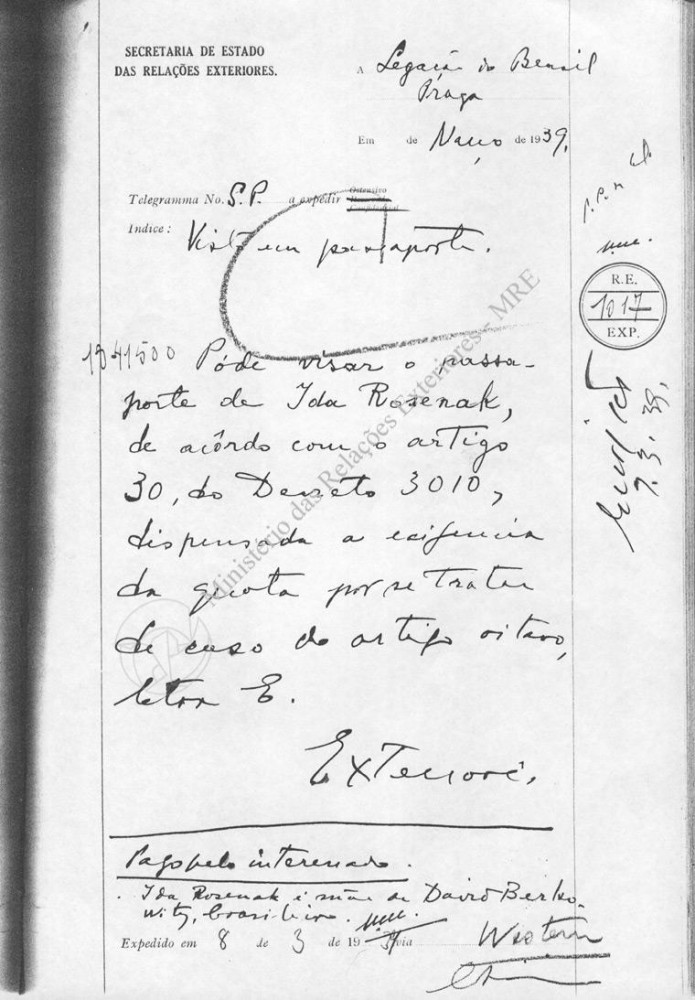 SECRETARIA DE ESTADO
DAS RELAÇÕES EXTERIORES.
A Legação do Brasil
Praga
Em de Março de 1939.
Telegramma No. S.P. a expedir Ostensivo
Indice: Visto em passaporte.
R.E.
1017
EXP.
1041500 Póde visar o passa-
porte de Ida Rosenak,
de acôrdo com o artigo
30, do Decreto 3010,
dispensada a exigencia
da quota por se tratar
de caso do artigo oitavo,
letra E.
Exteriores.
9.3.39.
Pago pelo interessado.
Ida Rosenak é mãe de David Berko-
witz, brasileiro.
Expedido em 8 de 3 de 1939 via Western
Ministério das Relações Exteriores - MRE